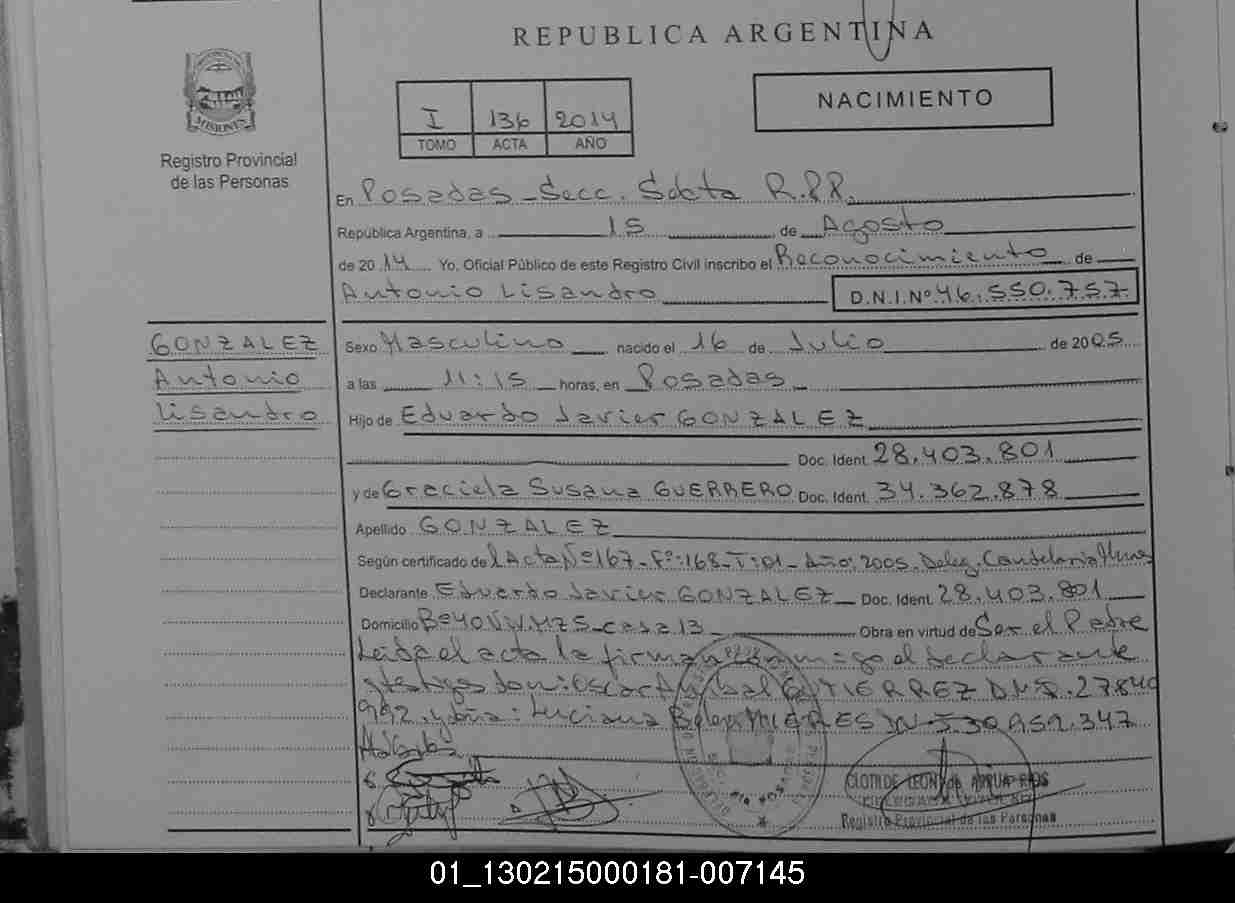 REPUBLICA ARGENTINA
NACIMIENTO
I 136 2014
TOMO ACTA AÑO
MISIONES
Registro Provincial
de las Personas
En Posadas - Secc. Sexta R.P.P.
República Argentina, a 15 de Agosto
de 2014 Yo, Oficial Público de este Registro Civil inscribo el Reconocimiento de
Antonio Lisandro D.N.I.Nº 46.550.757
GONZALEZ
Antonio
Lisandro
Sexo Masculino nacido el 16 de Julio de 2005
a las 11:15 horas, en Posadas
Hijo de Eduardo Javier GONZALEZ
Doc. Ident. 28.403.801
y de Graciela Susana GUERRERO Doc. Ident. 34.362.878
Apellido GONZALEZ
Según certificado de l Acta Nº 167 - Fº: 168 - T: 01 - Año: 2005. Deleg. Candelaria
Declarante Eduardo Javier GONZALEZ Doc. Ident. 28.403.801
Domicilio Bº 40 Mz 5 - casa 13 Obra en virtud de Ser el Padre
Leida el acta la firman conmigo el declarante
y testigos don: Oscar Anibal GUTIERREZ DNI. 27840
992 y doña: Luciana Belen MIERES DNI 30.952.347
CLOTILDE LEON de
Registro Provincial de las Personas
01_130215000181-007145